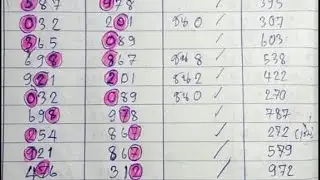 587 978 / 395
032 201 ⁄ 307
365 089 / 603
698 867 / 538
921 201 / 422
032 089 / 270
698 978 / 787
254 867 / 272
121 867 / 579
476 312 / 972